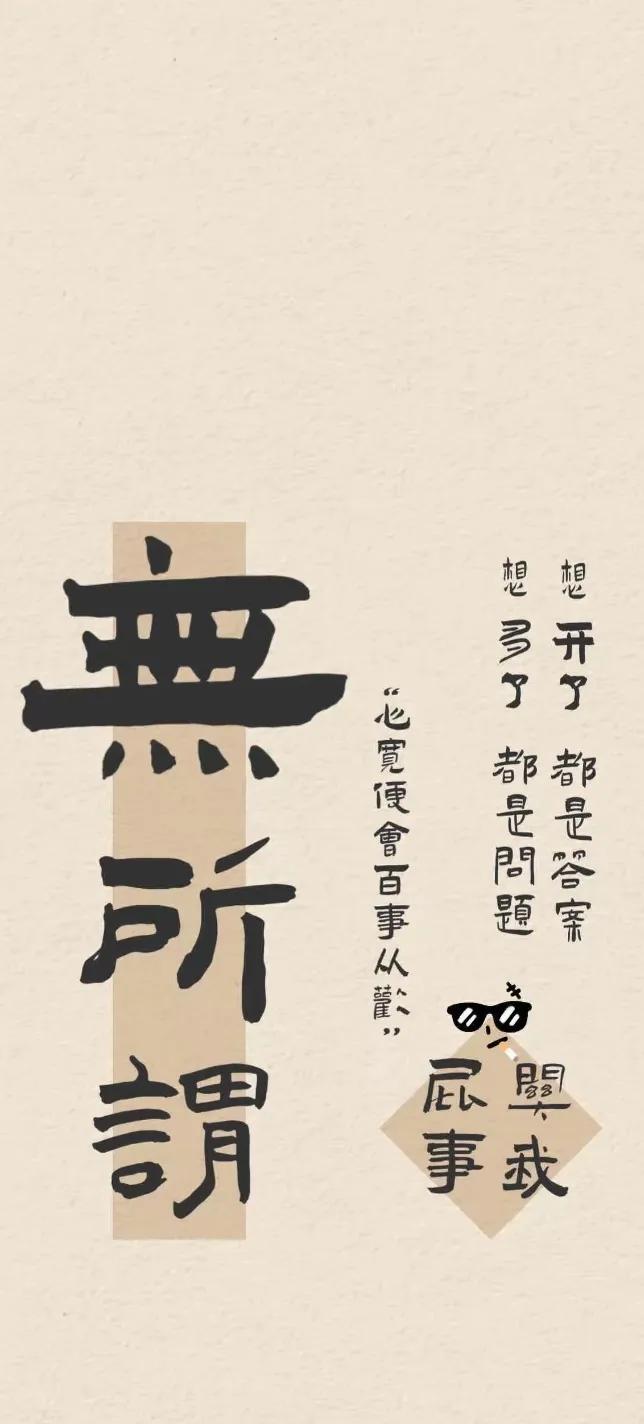 想开了 都是答案
想多了 都是問題
“心寬便會百事从歡”
無所謂
關我
屁事